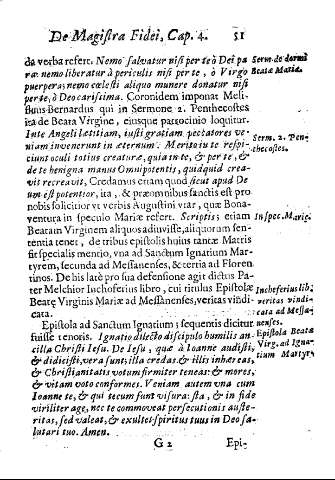 De Magistra Fidei, Cap. 4. 51
da verba refert. Nemo salvatur nisi per te ò Dei pa
ræ: nemo liberatur à periculis nisi per te, ò Virgo
puerpera; nemo cœlesti aliquo munere donatur nisi
per te, ò Deo carissima. Coronidem imponat Meli-
fluus-Bernardus qui in Sermone 2. Penthecostes
ita de Beata Virgine, eiusque patrocinio loquitur.
Inte Angeli lætitiam, iusti gratiam peccatores ve-
niam invenerunt in æternum. Merito in te respi-
ciunt oculi totius creaturæ, quia in te, & per te, &
de te benigna manus Omnipotentis, quidquid crea-
vit recreavit, Credamus etiam quod sicut apud De
um est potentior, ita, & præ omnibus sanctis est pro
nobis solicitior vt verbis Augustini vtar, quæ Bona-
ventura in speculo Mariæ refert. Scriptis; etiam
Beatam Virginem aliquos adiuvisse, aliquorum sen-
tentia tenet, de tribus epistolis huius tancæ Matris
fit specialis mentio, vna ad Sanctum Ignatium Mar-
tyrem, secunda ad Messanenses, & tertia ad Floren
tinos. De his latè pro sua defensione agit dictus Pa-
ter Melchior Inchoferius libro, cui titulus Epistolæ
Beatę Virginis Mariæ ad Messanẽses, veritas vindi-
cata.
Epistola ad Sanctum Ignatium; sequentis dicitur
fuisse tenoris. Ignatio dilecto discipulo humilis an
cilla Christi Iesu. De Iesu, quæ à Ioanne audisti,
& didicisti, vera sunt; illa credas. & illis inhæreas,
& Christianitatis votum firmiter teneas: & mores,
& vitam voto conformes. Veniam autem vna cum
Ioanne te, & qui tecum sunt visura: sta, & in fide
viriliter age, nec te commoveat persecutionis auste-
ritas, sed valeat, & exultet spiritus tuus in Deo sa-
lutari tuo. Amen.
G 2 Epi-
Serm. de dormi
Beata Mariæ.
Serm. 2. Pen-
thecostes.
In spec. Mariæ.
Inchoferius lib.
veritas vindi-
cata ad Messa-
nenses.
Epistola Beatæ
Virg. ad Igna-
tium Martyr.